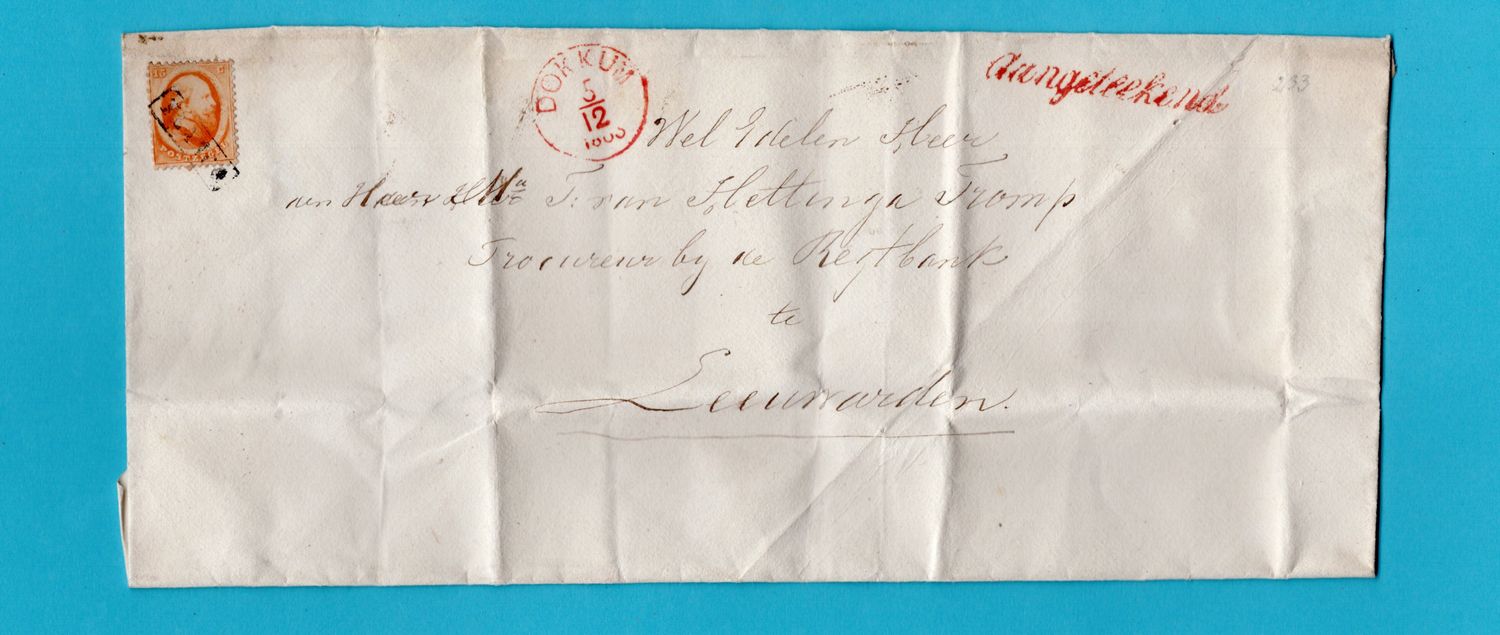 DOKKUM
5
12
Aangeteekend
233
Wel Edelen Heer
aen Heer T: van Hettinga Tromp
Procureur by de Regtbank
te
Leeuwarden.